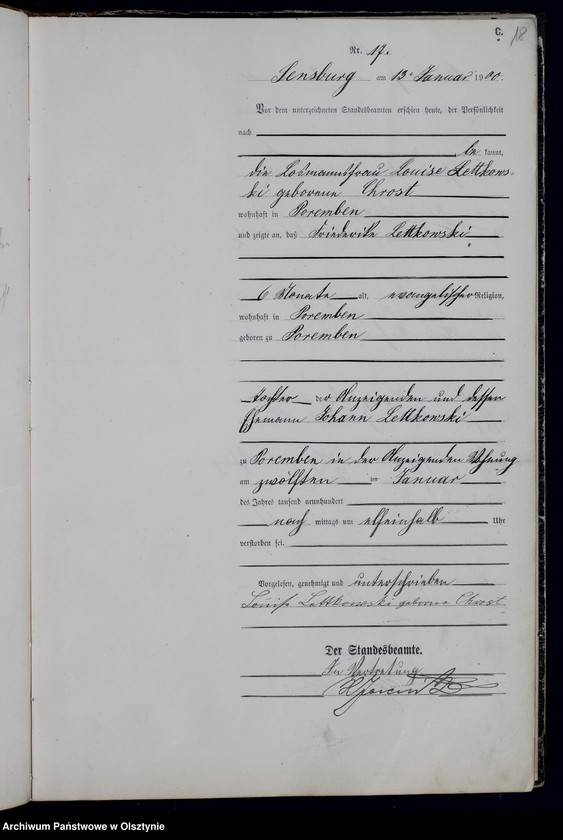 C.
18
Nr. 17.
Sensburg am 13 Januar 1900.
Vor dem unterzeichneten Standesbeamten erschien heute, der Persönlichkeit
nach
be kannt,
die Losmannsfrau Louise Lettkows-
ki geborene Chrost
wohnhaft in Poremben
und zeigte an, daß Friederike Lettkowski
6 Monate alt, evangelischer Religion,
wohnhaft in Poremben
geboren zu Poremben
Tochter der Anzeigenden und dessen
Ehemann Johann Lettkowski
zu Poremben in der Anzeigenden Wohnung
am zwölften ten Januar
des Jahres tausend neunhundert
nach mittags um elfeinhalb Uhr
verstorben sei.
Vorgelesen, genehmigt und unterschrieben
Louise Lettkowski geborene Chrost
Der Standesbeamte.
In Vertretung
Archiwum Państwowe w Olsztynie